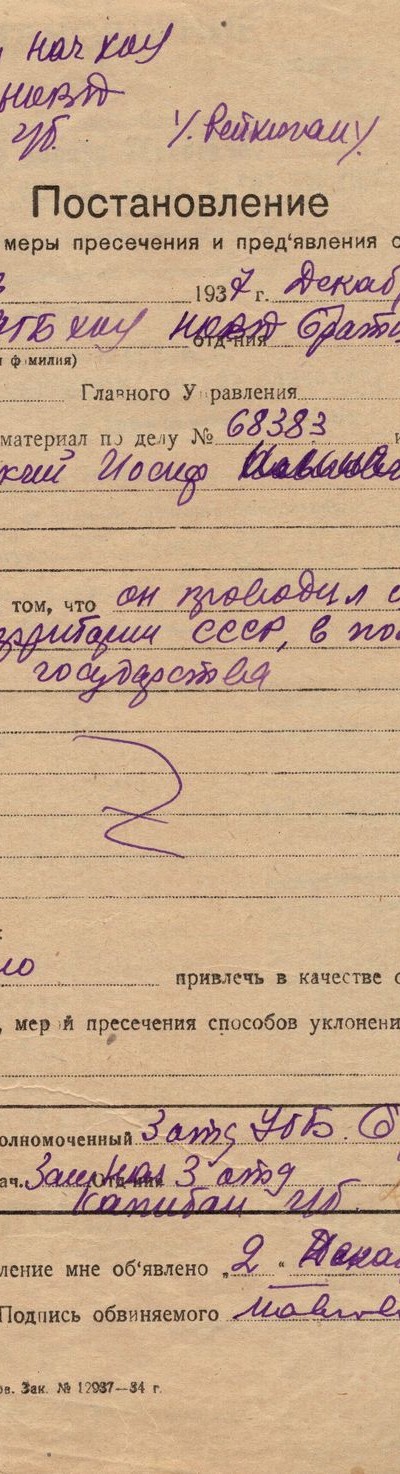 нач ХОУ
НКВД
ГБ. /. Рейхман/
Постановление
меры пресечения и пред‘явления о
1937 г. Декаб
УГБ ХОУ НКВД Брат
отд-ния
и ф милия)
Главного У равления
материал по делу № 68383
кий Иосиф
том, что он проводил
территории СССР, в по
государства
привлечь в качестве о
, мер й пресечения способов уклонени
олномоченный 3 отд УГБ.
ач. Зам нач 3 отд
Отд-ния
Капитан ГБ.
ление мне об‘явлено „ 2 “ Дека
Подпись обвиняемого
ов. Зак. № 12937—34 г.